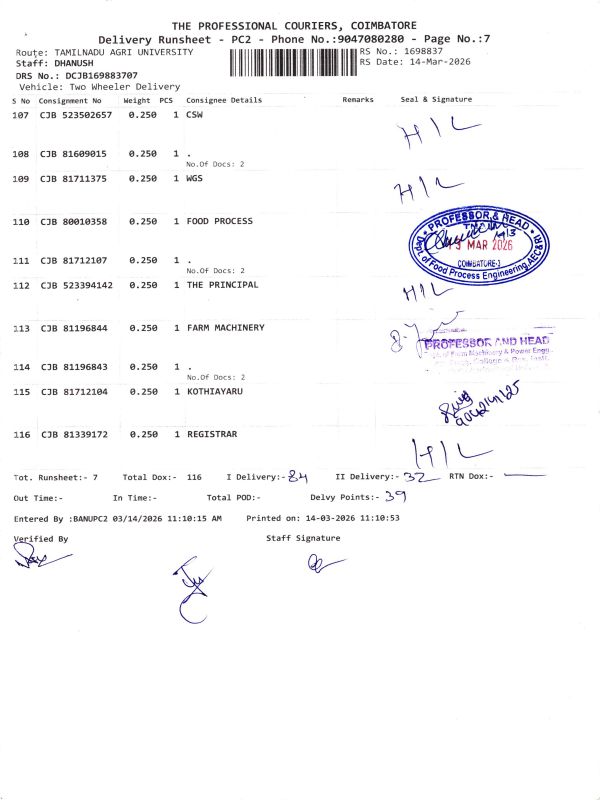 THE PROFESSIONAL COURIERS, COIMBATORE
Delivery Runsheet - PC2 - Phone No.:9047080280 - Page No.:7
Route: TAMILNADU AGRI UNIVERSITY
RS No.: 1698837
Staff: DHANUSH
RS Date: 14-Mar-2026
DRS No.: DCJB169883707
Vehicle: Two Wheeler Delivery
S No Consignment No Weight PCS Consignee Details Remarks Seal & Signature
107 CJB 523502657 0.250 1 CSW H/L
108 CJB 81609015 0.250 1 .
No.Of Docs: 2
109 CJB 81711375 0.250 1 WGS H/L
110 CJB 80010358 0.250 1 FOOD PROCESS
PROFESSOR & HEAD
MAR 2026
COIMBATORE-3
Dept. of Food Process Engineering, AEC&RI
111 CJB 81712107 0.250 1 .
No.Of Docs: 2
112 CJB 523394142 0.250 1 THE PRINCIPAL H/L
113 CJB 81196844 0.250 1 FARM MACHINERY
PROFESSOR AND HEAD
of Farm Machinery & Power Engg.
114 CJB 81196843 0.250 1 .
No.Of Docs: 2
115 CJB 81712104 0.250 1 KOTHIAYARU
116 CJB 81339172 0.250 1 REGISTRAR H/L
Tot. Runsheet:- 7 Total Dox:- 116 I Delivery:- 84 II Delivery:- 32 RTN Dox:-
Out Time:- In Time:- Total POD:- Delvy Points:- 39
Entered By :BANUPC2 03/14/2026 11:10:15 AM Printed on: 14-03-2026 11:10:53
Verified By Staff Signature